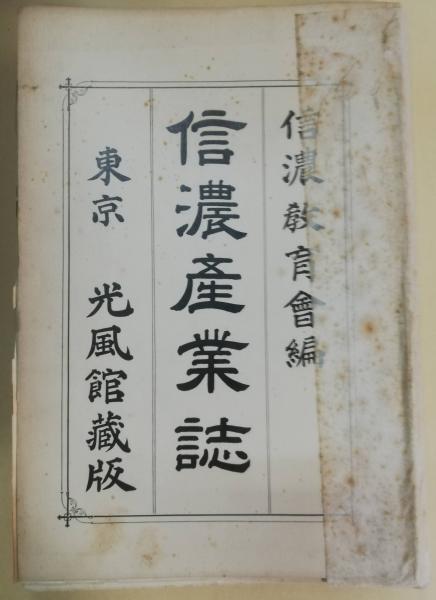 信濃教育會編
信濃產業誌
東京 光風館藏版